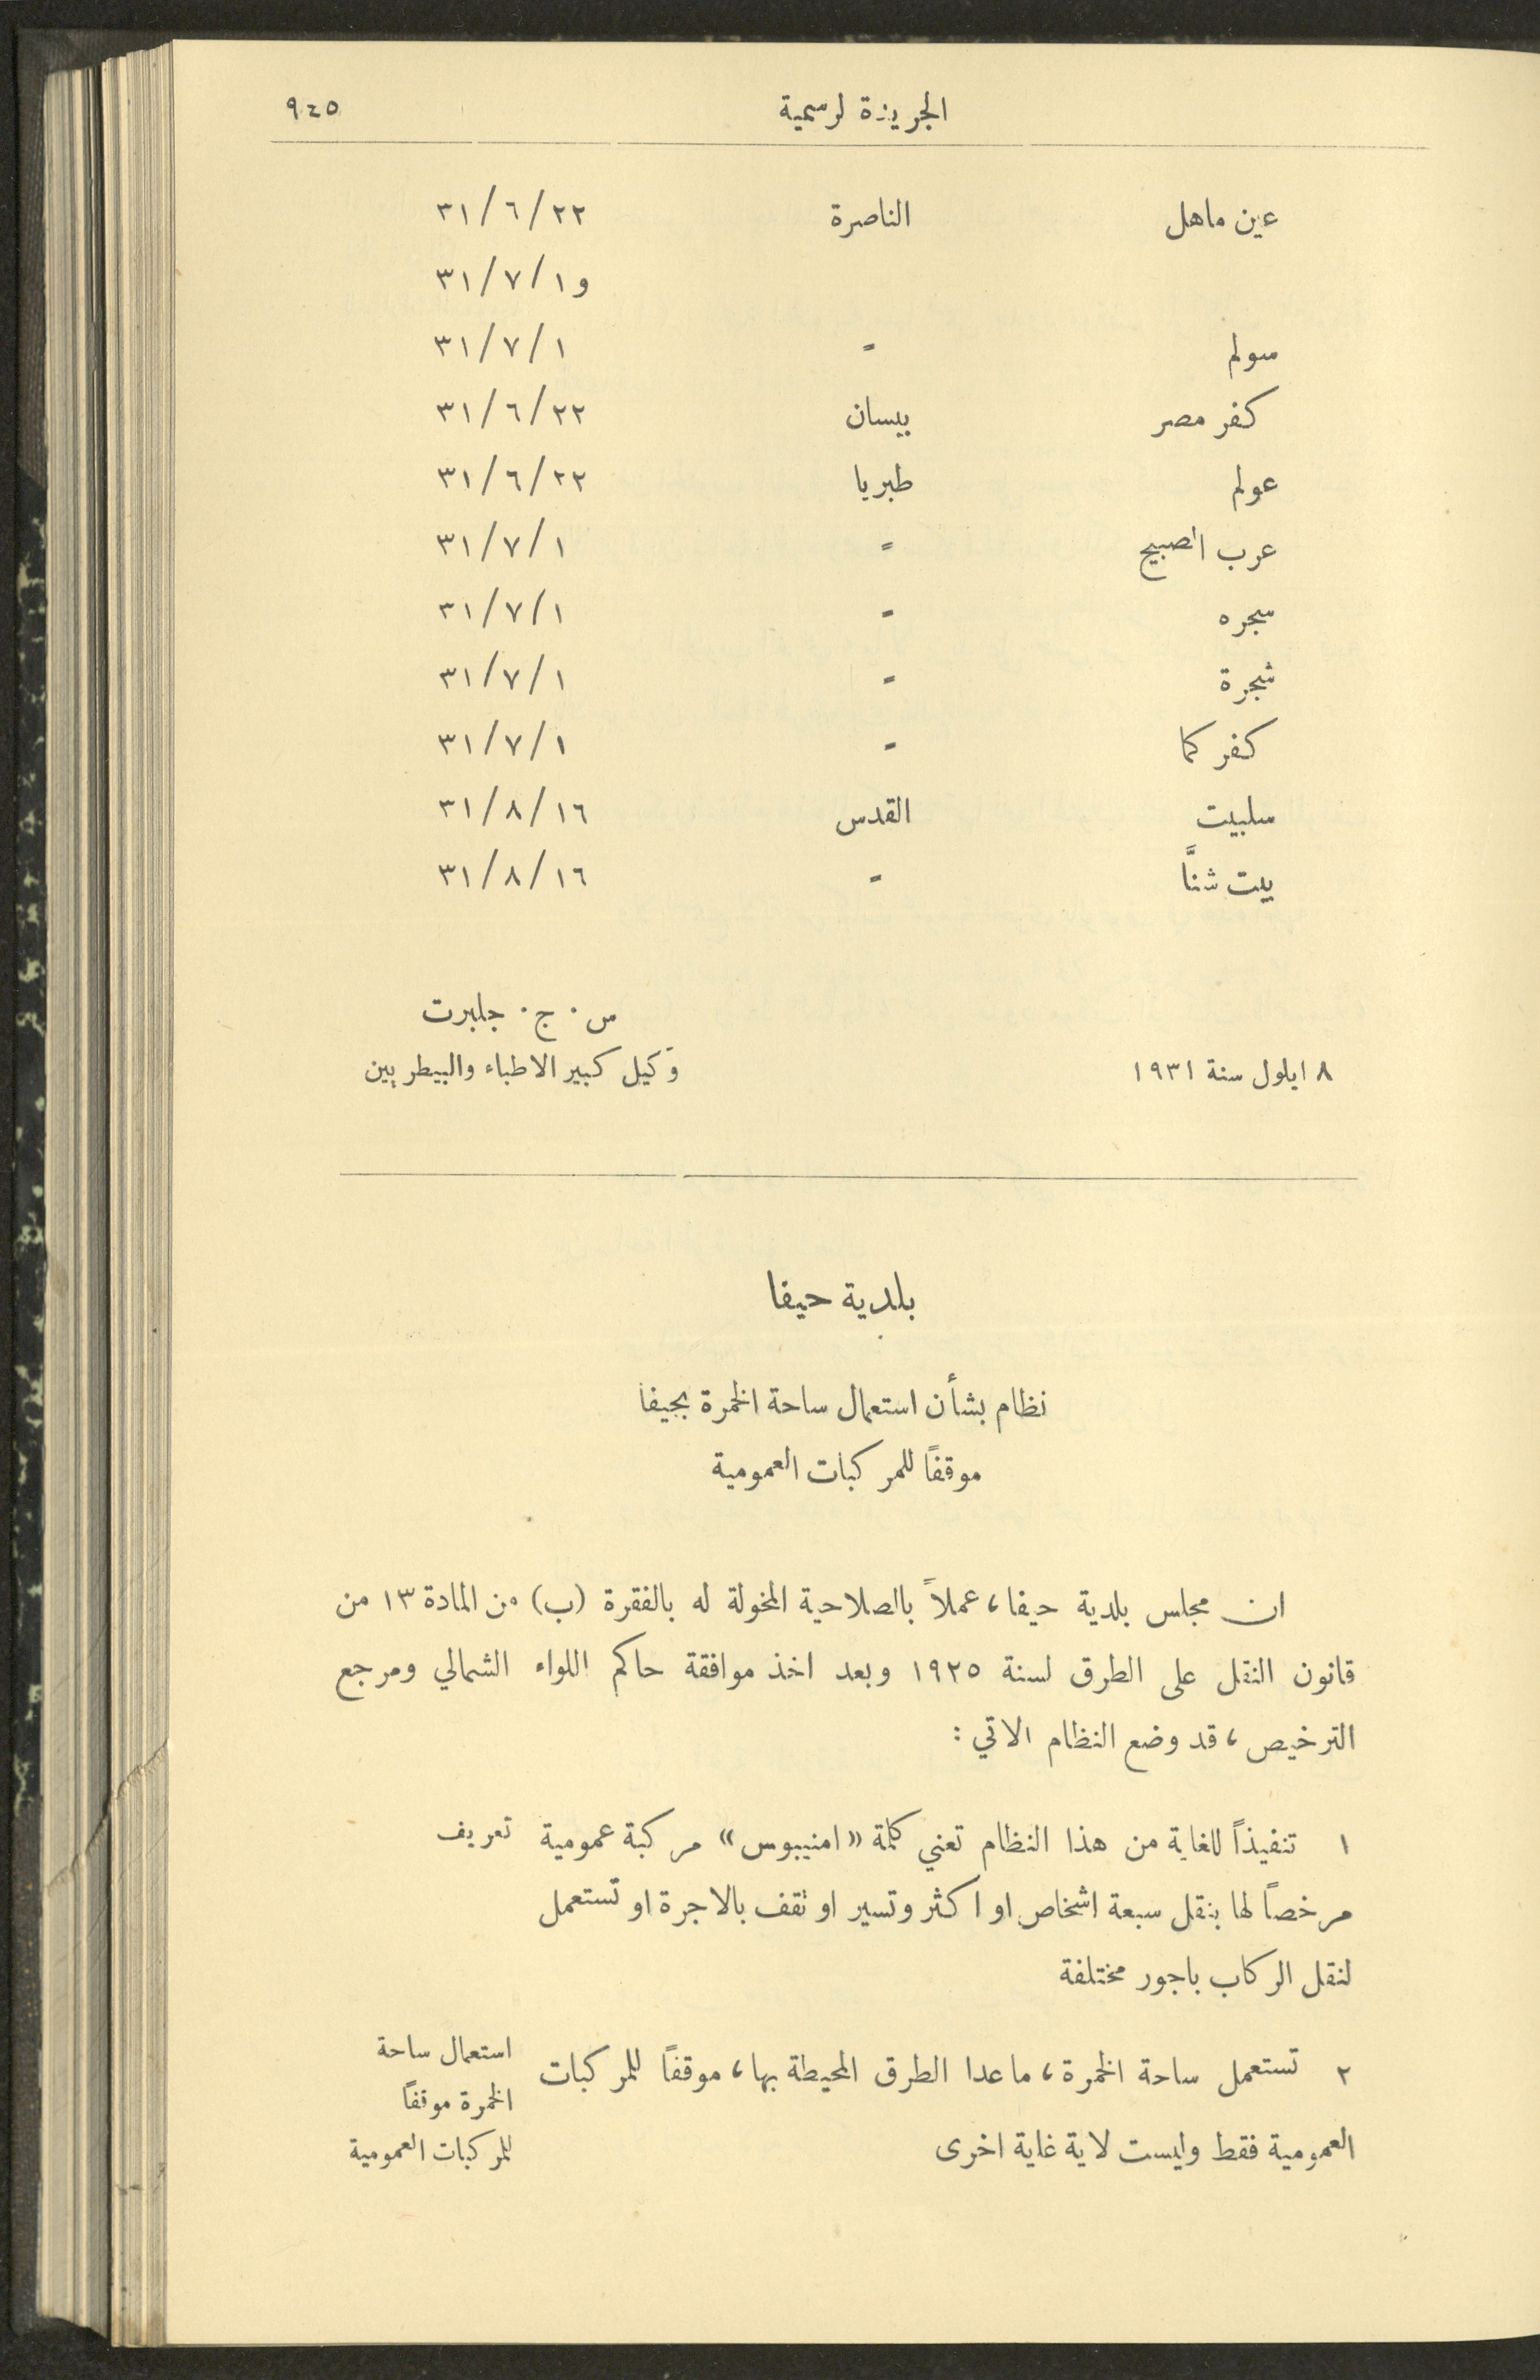 الجريدة لرسمية ٩٤٥
عين ماهل الناصرة ٢٢/٦/٣١
و١/٧/٣١
سولم = ١/٧/٣١
كفر مصر بيسان ٢٢/٦/٣١
عولم طبريا ٢٢/٦/٣١
عرب الصبيح = ١/٧/٣١
سجره = ١/٧/٣١
شجرة = ١/٧/٣١
كفر كما = ١/٧/٣١
سلبيت القدس ١٦/٨/٣١
بيت شنَّا = ١٦/٨/٣١
س. ج. جلبرت
٨ ايلول سنة ١٩٣١ وكيل كبير الاطباء والبيطريين
بلدية حيفا
نظام بشأن استعمال ساحة الخمرة بحيفا
موقفاً للمركبات العمومية
ان مجلس بلدية حيفا، عملاً بالصلاحية المخولة له بالفقرة (ب) من المادة ١٣ من
قانون النقل على الطرق لسنة ١٩٢٥ وبعد اخذ موافقة حاكم اللواء الشمالي ومرجع
الترخيص، قد وضع النظام الاتي:
١ تنفيذاً للغاية من هذا النظام تعني كلمة «امنيبوس» مركبة عمومية تعريف
مرخصاً لها بنقل سبعة اشخاص او اكثر وتسير او تقف بالاجرة او تستعمل
لنقل الركاب باجور مختلفة
٢ تستعمل ساحة الخمرة، ما عدا الطرق المحيطة بها، موقفاً للمركبات
العمومية فقط وليست لاية غاية اخرى
استعمال ساحة
الخمرة موقفاً
للمركبات العمومية